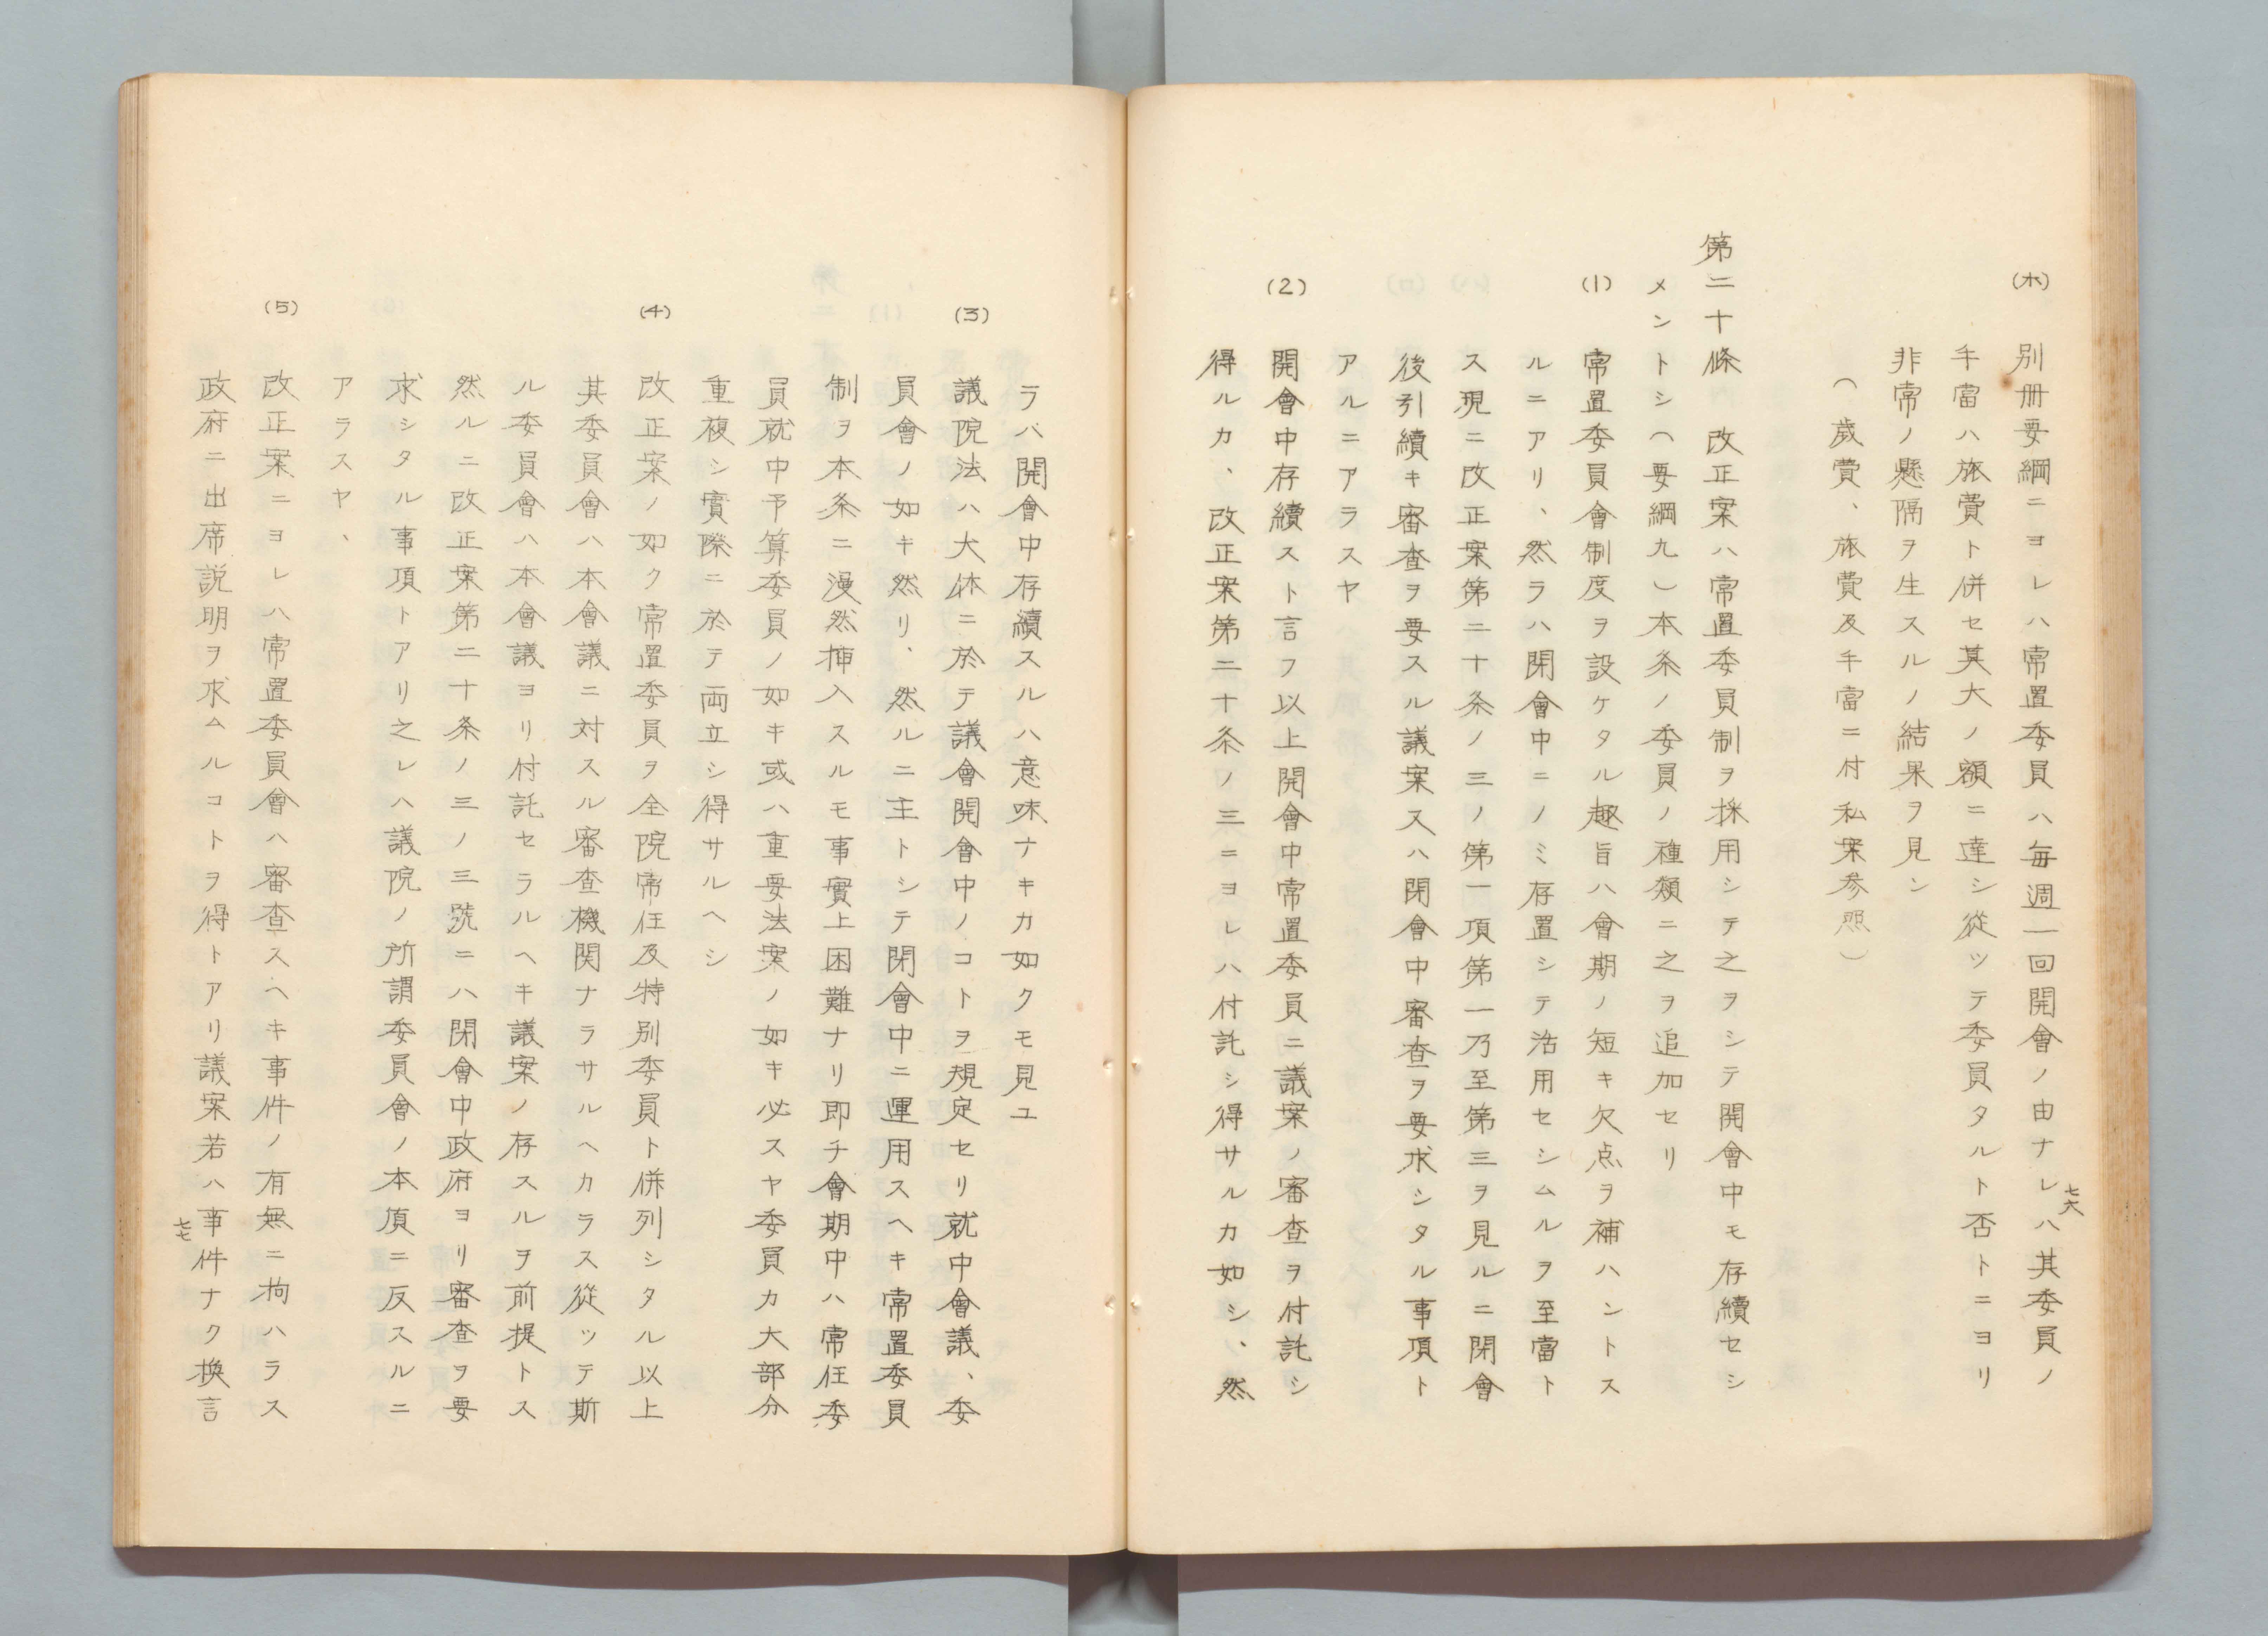 (ホ) 別冊要綱ニヨレハ常置委員ハ毎週一回開會ノ由ナレハ其委員ノ
手當ハ旅費ト併セ莫大ノ額ニ達シ從ツテ委員タルト否トニヨリ
非常ノ懸隔ヲ生スルノ結果ヲ見ン
(歳費、旅費及手當ニ付私案参照)
第二十條 改正案ハ常置委員制ヲ採用シテ之ヲシテ開會中モ存續セシ
メントシ(要綱九)本条ノ委員ノ種類ニ之ヲ追加セリ
(1) 常置委員會制度ヲ設ケタル趣旨ハ會期ノ短キ欠点ヲ補ハントス
ルニアリ、然ラハ閉會中ニノミ存置シテ活用セシムルヲ至當ト
ス現ニ改正案第二十条ノ三ノ第一項第一乃至第三ヲ見ルニ閉會
後引續キ審査ヲ要スル議案又ハ閉會中審査ヲ要求シタル事項ト
アルニアラスヤ
(2) 開會中存續スト言フ以上開會中常置委員ニ議案ノ審査ヲ付託シ
得ルカ、改正案第二十条ノ三ニヨレハ付託シ得サルカ如シ、然
七六
ラバ開會中存續スルハ意味ナキカ如クモ見ユ
(3) 議院法ハ大体ニ於テ議會開會中ノコトヲ規定セリ就中會議、委
員會ノ如キ然リ、然ルニ主トシテ閉會中ニ運用スヘキ常置委員
制ヲ本条ニ漫然挿入スルモ事實上困難ナリ即チ會期中ハ常任委
員就中予算委員ノ如キ或ハ重要法案ノ如キ必スヤ委員カ大部分
重複シ實際ニ於テ両立シ得サルヘシ
(4) 改正案ノ如ク常置委員ヲ全院常任及特別委員ト併列シタル以上
其委員會ハ本會議ニ対スル審査機関ナラサルヘカラス從ツテ斯
ル委員會ハ本會議ヨリ付託セラルヘキ議案ノ存スルヲ前提トス
然ルニ改正案第二十条ノ三ノ三號ニハ閉會中政府ヨリ審査ヲ要
求シタル事項トアリ之レハ議院ノ所謂委員會ノ本質ニ反スルニ
アラスヤ、
(5) 改正案ニヨレハ常置委員會ハ審査スヘキ事件ノ有無ニ拘ハラス
政府ニ出席説明ヲ求ムルコトヲ得トアリ議案若ハ事件ナク換言
七七